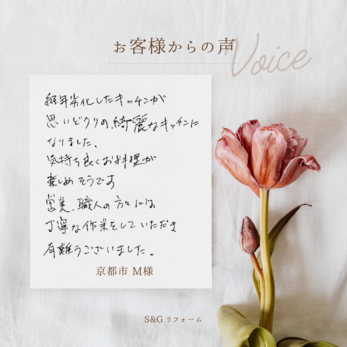 お客様からの声
Voice
経年劣化したキッチンが
思いどうりの、綺麗なキッチンに
なりました。
気持ち良くお料理が
楽しめそうです
営業、職人の方々には
丁寧な作業をしていただき
有難うございました。
京都市 M様
S&G リフォーム